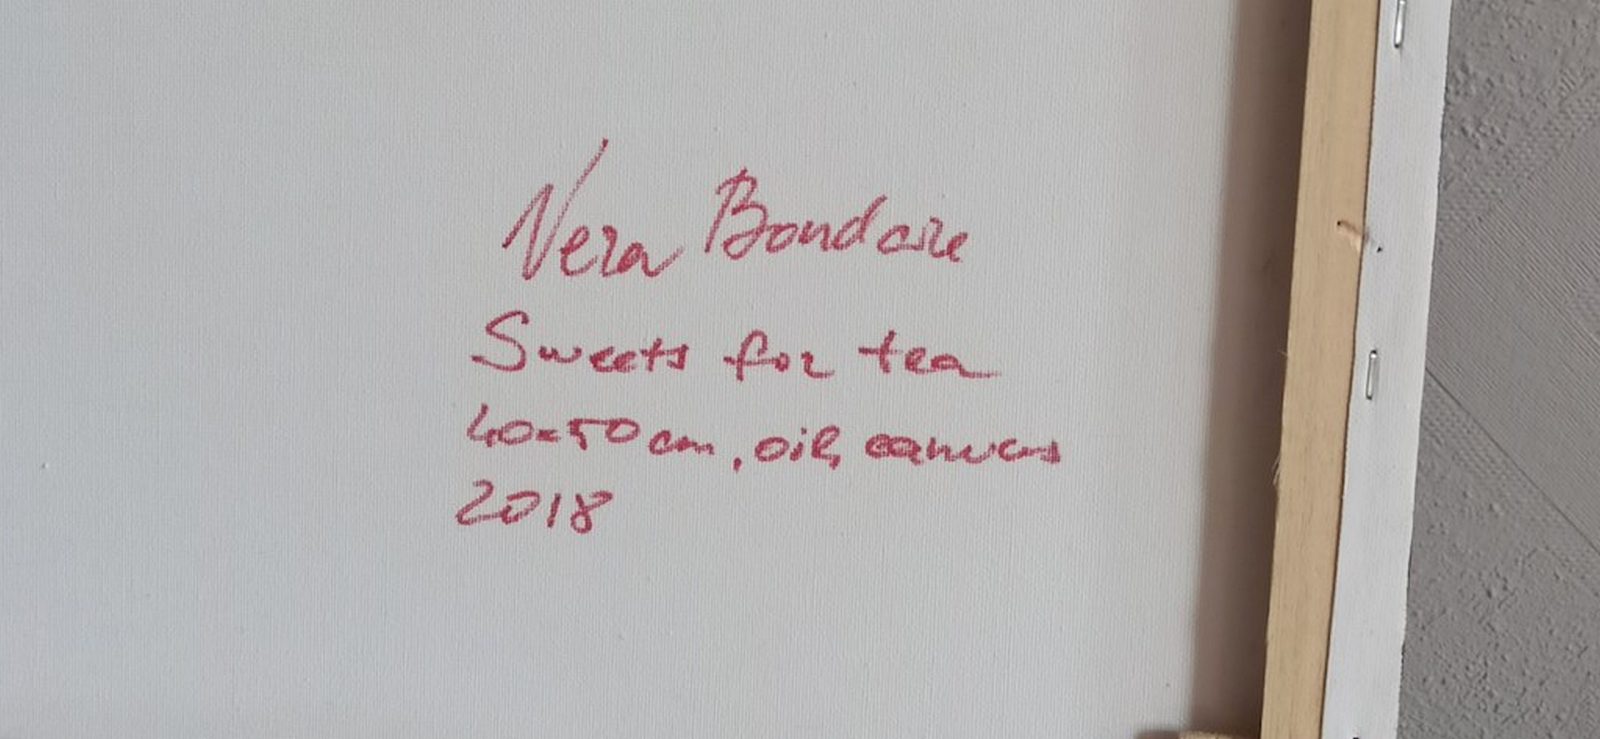 Vera Bondare
Sweets for tea
40x50 cm, oil, canvas
2018